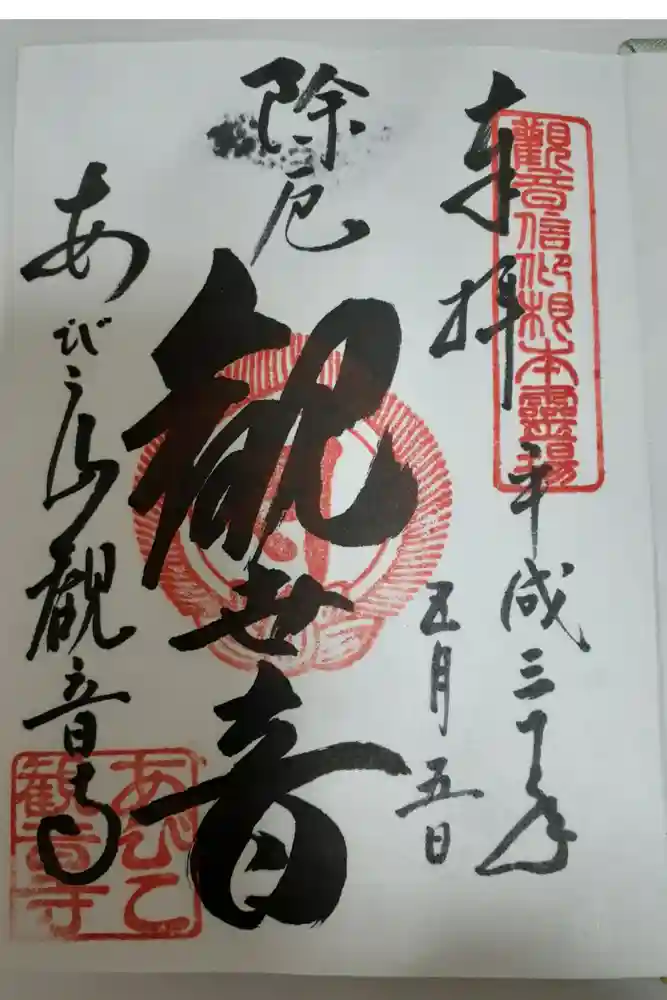 奉拝
平成三十年
五月五日
除厄
観世音
あびこ山観音寺
觀音信仰根本靈場
あびこ
観音寺